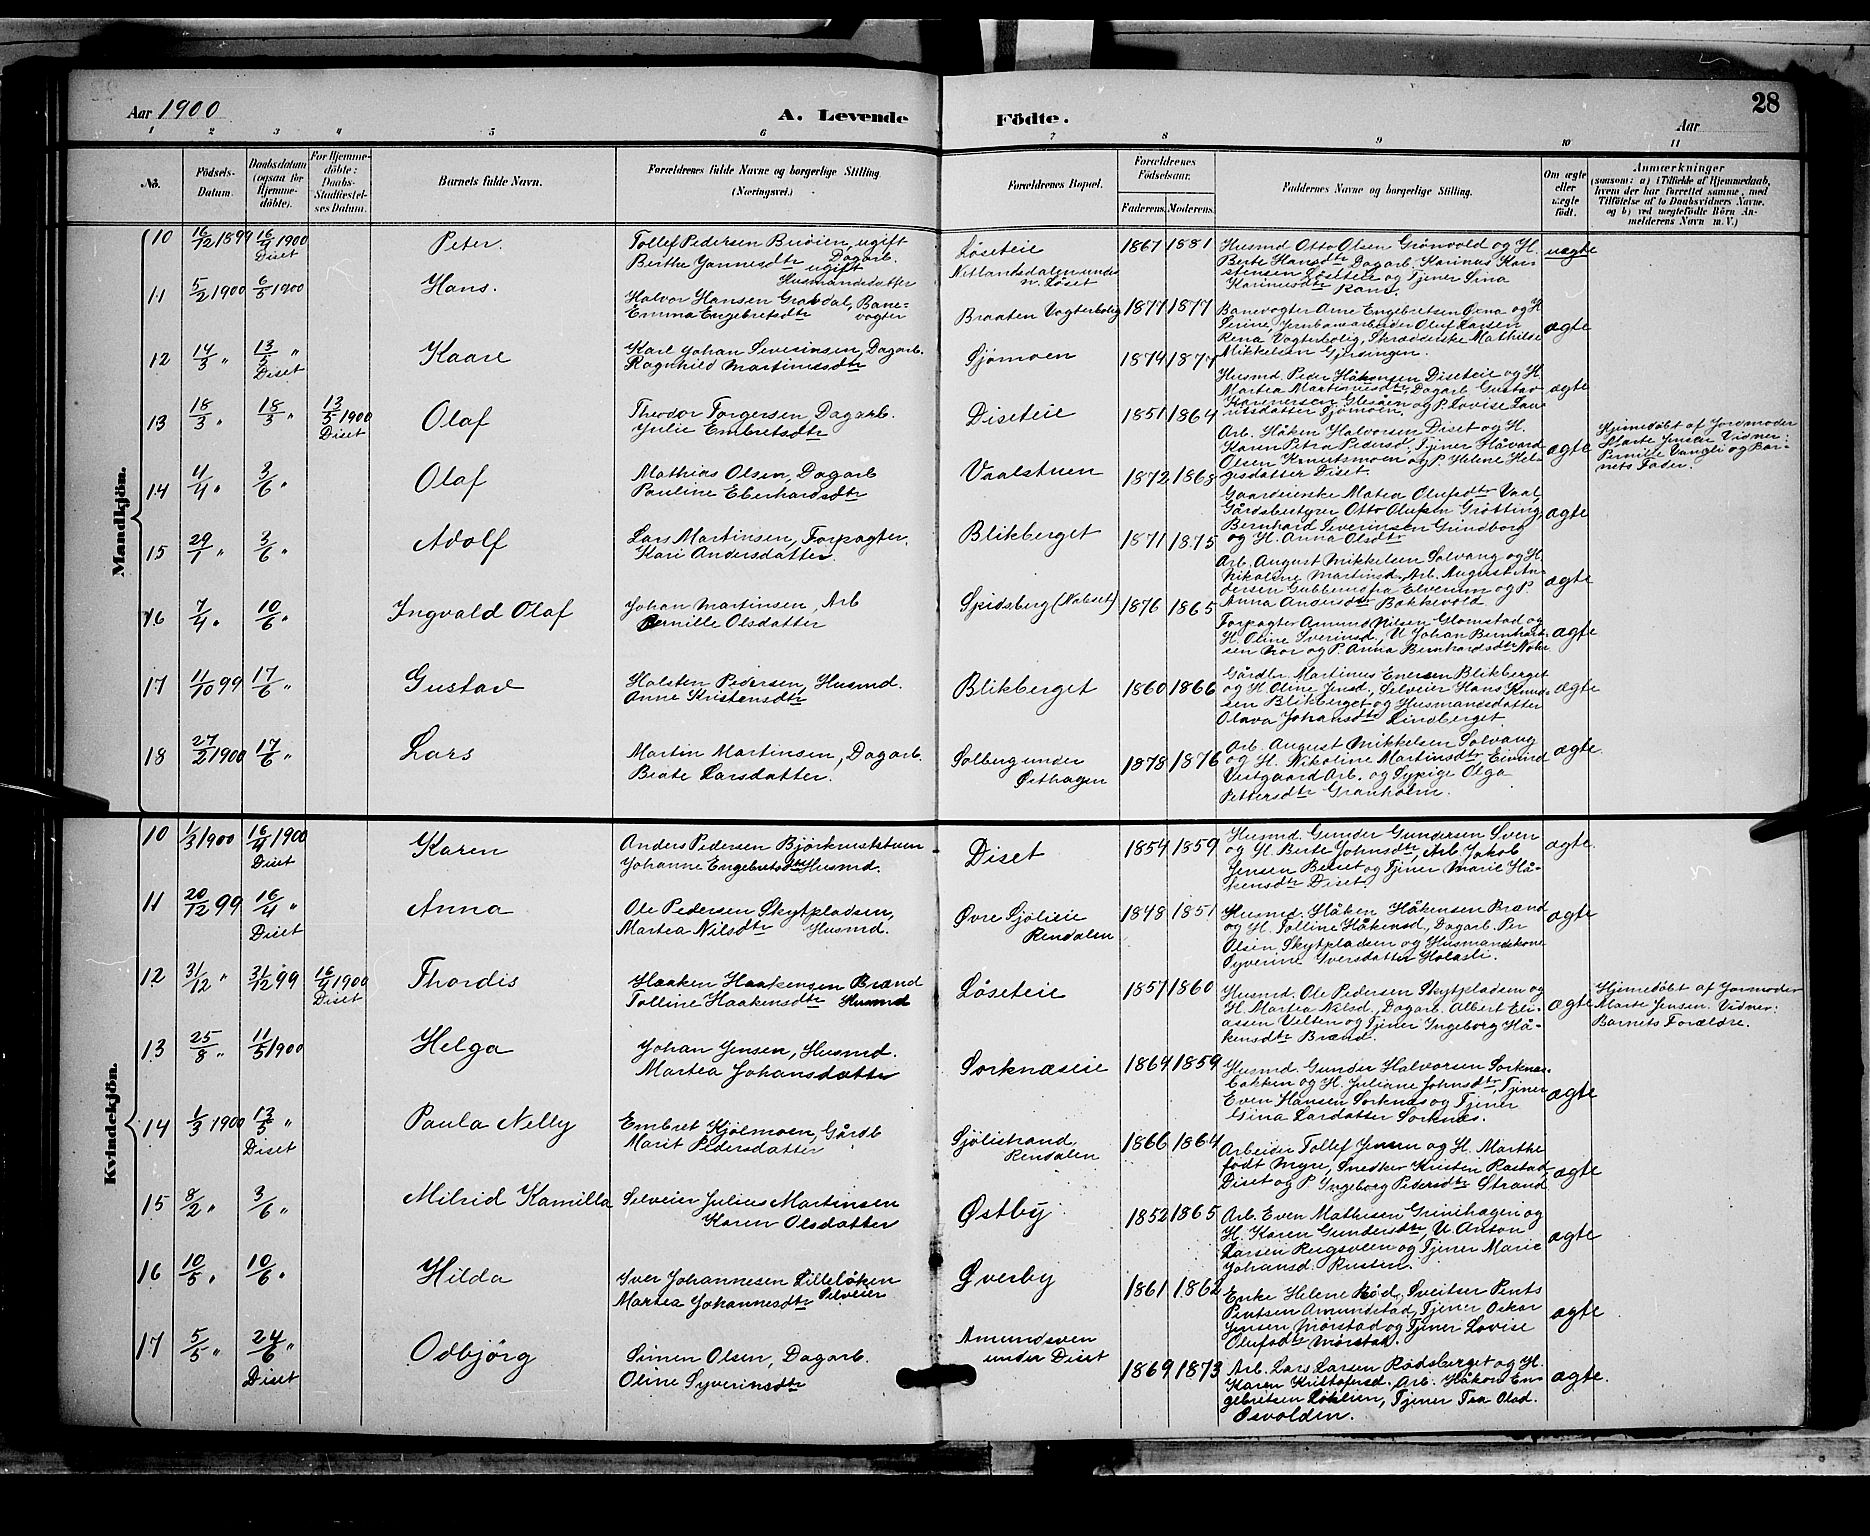 Aar 1900
A. Levende Födte.
Aar
28
1 2 3 4 5 6 7 8 9 10 11
No.
Födsels-Datum.
Daabsdatum (ogsaa for Hjemme-döbte).
For Hjemme-döbte: Daabs-Stadfæstel-ses Datum.
Barnets fulde Navn.
Forældrenes fulde Navne og borgerlige Stilling. (Næringsvei.)
Forældrenes Bopæl.
Forældrenes Födselsaar.
Faderens. Moderens.
Faddernes Navne og borgerlige Stilling.
Om ægte eller uægte födt.
Anmærkninger
(saasom: a) i Tilfælde af Hjemmedaab, hvem der har forrettet samme, med Tilföielse af to Daabsvidners Navne, og b) ved uægtefödte Börn An-melderens Navn m. V.)
Mandkjön.
10 16/12 1899 16/4 1900 Diset Peter.
Tollef Pedersen Bröien, ugift Dagarb.
Berthe Jannesdtr ugift Husmandsdatter
Löseteie
Netlandsdalen under n. Löset
1867 1881
Husmd Otto Olsen Grönvold og H.
Berte Hansdtr Dagarb. Karinus Kar-
stensen Löseteie og Tjener Sina
Karinusdtr
uægte
11 5/2 1900 6/5 1900 Hans.
Halvor Hansen Grandal, Bane-
Emma Engebretsdtr vogter
Braaten Vogterbolig
1877 1877
Banevogter Arne Engebretsen Öxna og H
Serine, Jernbanearbeider Oluf Larsen
Rena Vogterbolig, Skrædderske Mathilde
Mikkelsen Gjersingen.
ægte
12 14/3 " 13/5 " Diset Kaare
Karl Johan Severinsen, Dagarb.
Ragnhild Martinusdtr
Sjömoen
1874 1877
Husmd. Peder Håkensen Diseteie og H.
Martea Martinusdtr, Dagarb Gustav
Karenersen Glesåen og P. Lovise Lau-
ritsdatter Sjömoen.
ægte
13 18/3 " 18/3 " 13/5 1900 Diset Olaf
Theodor Torgersen Dagarb.
Julie Embretsdtr
Diseteie
1851 1864
Arb. Håken Halvorsen Diset og H.
Karen Petra Pedersd, Tjener Håvard
Olsen Knutsmoen og P. Helene Hel-
gesdatter Diset.
ægte
Hjemedöbt af Jordmoder
Marte Jensen Vidner:
Pernille Vangli og Bar-
nets Fader.
14 4/4 " 3/6 " Olaf
Mathias Olsen, Dagarb
Pauline Eberhardsdtr
Vaalstuen
1872 1868
Gaardeierske Matea Olufsdtr Vaal,
Gårdsbestyrer Otto Olufsen Grötting,
Bernhard Severinsen Grindborg
og H. Anna Olsdtr
ægte
15 29/1 " 3/6 " Adolf
Lars Martinsen, Forpagter.
Kari Andersdatter.
Blikberget
1871 1875
Arb. August Mikkelsen Solvang og H.
Nikoline Martinsd, Arb. August An-
dersen Gubberud fra Elverum og P.
Anna Andersdtr Bakkevold
ægte
16 7/4 " 10/6 " Ingvald Olaf
Johan Martinsen, Arb
Pernille Olsdatter
Spidsberg (Nabset)
1876 1865
Forpagter Amund Nilsen Glomstad og
H. Oline Sverinsd, U Johan Bernhard-
sen Nor og P. Anna Bernhardsdtr
ægte
17 11/10 99 17/6 " Gustav
Halsten Pedersen, Husmd.
Anne Kristensdtr
Blikberget
1860 1866
Gårdbr Martinus Enersen Blikberget
og H. Oline Jensd., Selveier Hans Knud-
sen Blikberget og Husmandsdatter
Olava Johansdtr Lindberget.
ægte
18 27/2 1900 17/6 " Lars
Martin Martinsen, Dagarb.
Beate Larsdatter.
Solberg under Östhagen
1878 1876
Arb. August Mikkelsen Solvang
og H. Nikoline Martinsdtr Eivind
Vestgaard Arb. og Sypige Olga
Pettersdtr Granholm.
ægte
Kvindekjön.
10 1/3 1900 16/4 1900 Diset Karen
Anders Pedersen Björknestetven
Johanne Engebretsdtr Husmd.
Diset
1854 1859
Husmd. Gunder Gundersen Sven
og H. Berte Johnsdtr, Arb. Jakob
Jensen Beiset og Tjener Marie Hå-
kensdtr Diset.
ægte.
11 20/12 99 16/4 " Diset Anna
Ole Pedersen Skytpladsen,
Martea Nilsdtr Husmd.
Övre Sjölieie Rendalen
1848 1851
Husmd. Håken Håkensen Brænd
og H. Tolline Håkensd, Dagarb. Per
Olsen Skytpladsen og Husmandskone
Syverine Iversdatter Holasli.
ægte
12 31/12 " 31/12 99 16/4 1900 Diset Thordis
Haaken Haakensen Brænd
Tolline Haakensdtr Husmd
Löseteie
1857 1860
Husmd. Ole Pedersen Skytpladsen og
H. Martea Nilsd, Dagarb. Albert Eli-
asen Velten og Tjener Ingeborg Hå-
kensdtr Brænd.
ægte
Hjemedöbt af Jormoder
Marte Jensen. Vidner:
Barnets Forældre.
13 25/8 " 11/5 1900 Helga
Johan Jensen, Husmd.
Martea Johansdatter
Sorknæseie
1864 1859
Husmd. Gunder Halvorsen Sorknæs-
bakken og H. Juliane Johnsdtr, Tjener
Even Hansen Sorknæs og Tjener
Gina Larsdatter Sorknæs.
ægte
14 1/3 1900 13/5 " Diset Paula Nelly
Embret Kjölmoen, Gårdb
Marit Pedersdatter
Sjölistrand, Rendalen
1866 1864
Arbeider Tollef Jensen og H. Marthe
födt Myre, Snedker Kristen Rastad,
Diset og P Ingeborg Pedersdtr Strand
ægte
15 8/2 " 3/6 " Milrid Kamilla
Selveier Julius Martinsen
Karen Olsdatter
Östby
1852 1865
Arb. Even Mathisen Grinihagen og
H. Karen Gundersdtr, U. Anton
Larsen Rugsveen og Tjener Marie
Johansd. Rusten.
ægte
16 10/5 " 10/6 " Hilda
Iver Johannesen Lillelöken
Martea Johannesdtr Selveier
Överby
1861 1862
Enke Helene Röd, Sveitser Pents
Pentsen Amundstad, Tjener Oskar
Jensen Mörstad og Tjener Lovise
Olufsdtr Mörstad.
ægte
17 5/5 " 24/6 " Diset Odbjörg
Simen Olsen, Dagarb.
Oline Syverinsdtr
Amundsven under Diset
1869 1873
Arb. Lars Larsen Rödsberget og H.
Karen Kristofersd. Arb. Håkon En-
gebretsen Löklien, Tjener Tea Olsd.
Osvolden.
ægte.